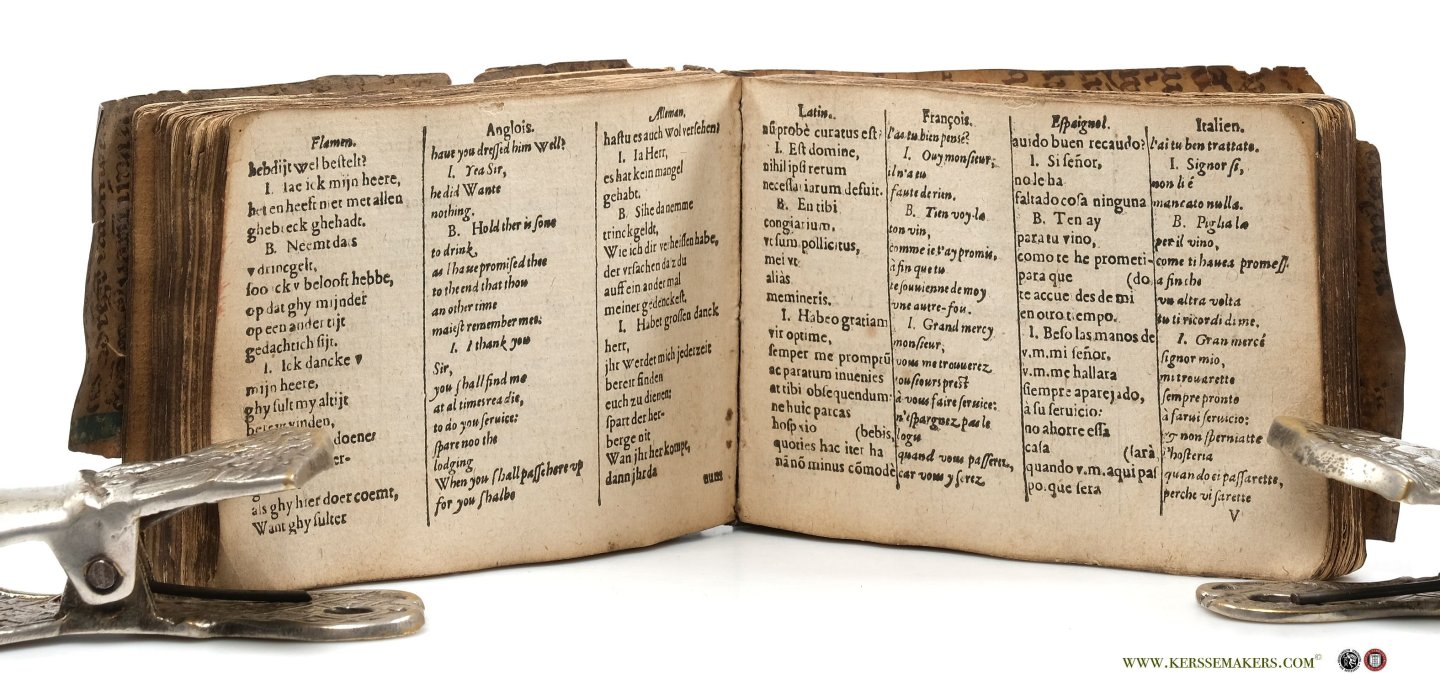 Flamen.
hebdijt wel bestelt?
I. Iae ick mijn heere,
het en heeft niet met allen
ghebreck ghehadt.
B. Neemt da s
v drincgelt,
soo ick v belooft hebbe,
op dat ghy mijnder
op een ander tijt
gedachtich sijt.
I. Ick dancke v
mijn heere,
ghy sult my altijt
vinden,
doenes
als ghy hier doer coemt,
Want ghy sulter
Anglois.
haue you dressed him Well?
I. Yea Sir,
he did Wante
nothing.
B. Hold ther is some
to drink,
as I haue promised thee
to the end that thou
an other time
maiest remember me.
I. I thank you
Sir,
you shall find me
at al times readie,
to do you seruice:
spare noo the
lodging
When you shall passe here vp
for you shalbe
Alleman,
hastu es auch wol versehen?
I. Ia Herr,
es hat kein mangel
gehabt.
B. Sihe da nemme
trinckgeldt,
Wie ich dir verheissen habe,
der vrsachen da zu
auff ein ander mal
meiner gedenckest.
I. Habet grossen danck
herr,
jhr werdet mich jederzeit
bereit finden
euch zu dienen:
spart der her-
berge nit
Wan jhr her kompt,
dann jhr da
num
Latin.
nū probè curatus est?
I. Est domine,
nihil ipsi rerum
necessariarum defuit.
B. En tibi
congiarium,
vt sum pollicitus,
mei vt
aliàs
memineris.
I. Habeo gratiam
vir optime,
semper me promptū
ac paratum inuenies
at tibi obsequendum:
ne huic parcas
hospitio (bebis,
quoties hac iter ha
nā nō minus cōmodè
François.
l'as tu bien pensé?
I. Ouy monsieur,
il n'a tu
faute de rien.
B. Tien voy-la
ton vin,
comme ie t'ay promis,
à fin que tu
te souuienne de moy
vne autre-fou.
I. Grand mercy
monsieur,
vous me trouuerez
tousiours prest
à vous faire seruice:
n'espargnez pas le
logis
quand vous passerez,
car vous y serez
Espaignol.
auido buen recaudo?
I. Si señor,
no le ha
faltado cosa ninguna
B. Ten ay
para tu vino,
como te he prometi-
para que (do
te accuerdes de mi
en otro tiempo.
I. Beso las manos de
v.m. mi señor.
v.m. me hallara
siempre aparejado,
à su seruicio:
no ahorre essa
casa (sarà
quando v.m. aqui pas
por que sera
Italien.
l'ai tu ben trattato.
I. Signor si,
non li é
mancato nulla.
B. Piglia la
per il vino,
come ti haueа promess.
a fin che
vn altra volta
tu ti ricordi di me.
I. Gran mercé
signor mio,
mi trouarette
sempre pronto
à farui seruicio:
& non sperniatte
l'hosteria
quando ei passarette,
perche vi sarette
V
WWW.KERSSEMAKERS.COM©